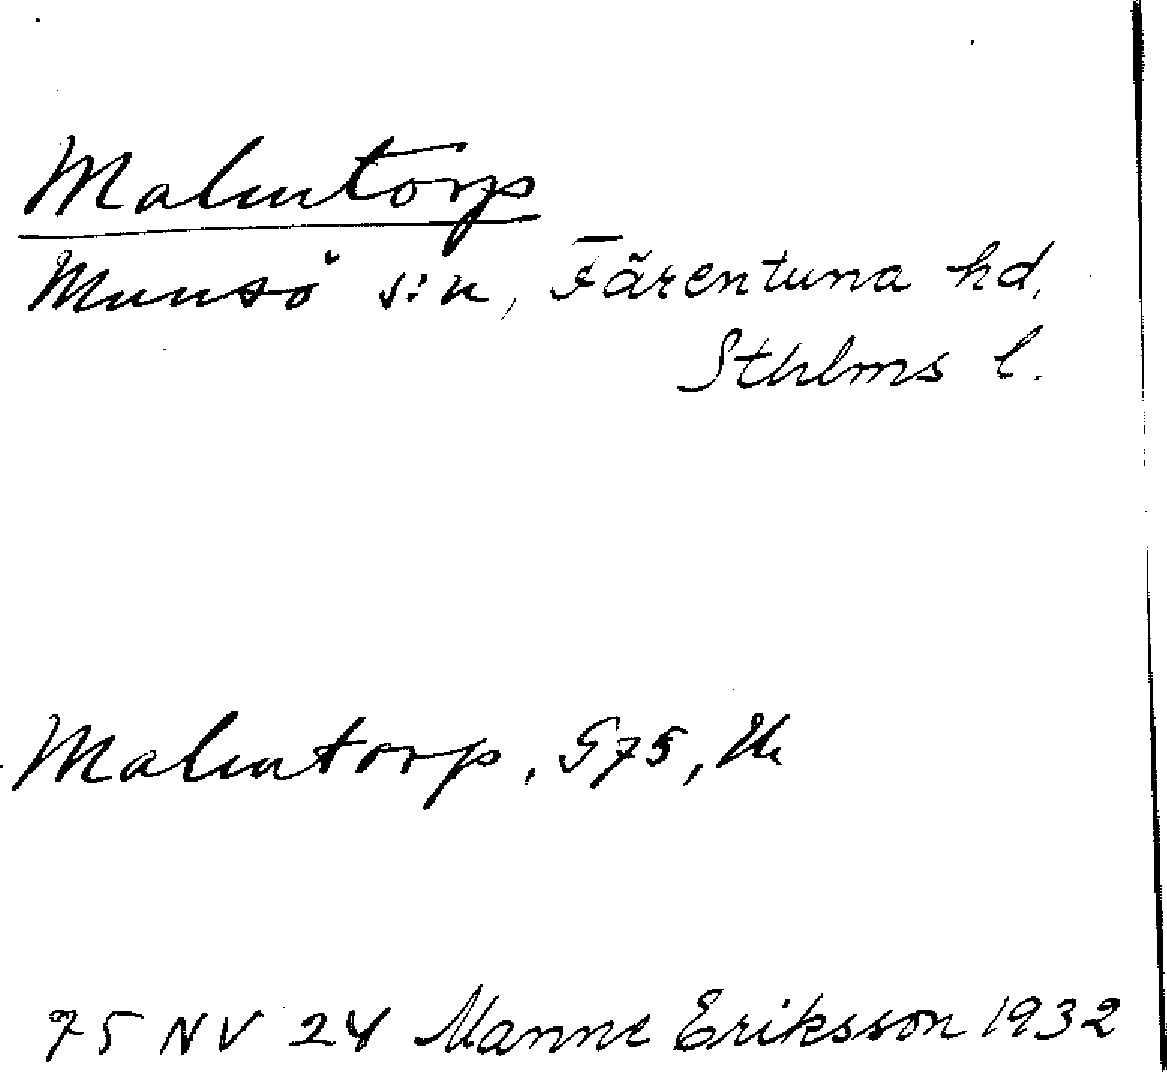 Malmtorp
Munsö s:n, Färentuna hd,
Sthlms l.
Malmtorp, G75,
75 NV 24 Manne Eriksson 1932